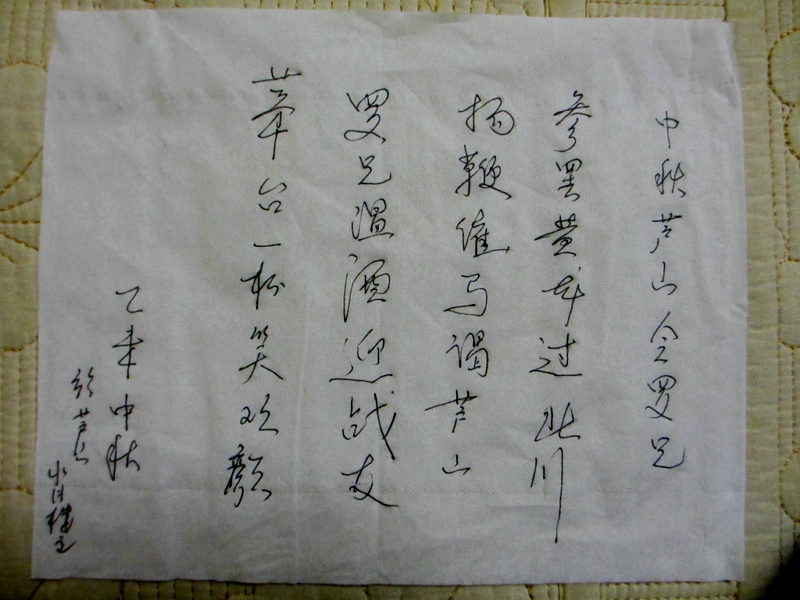 中秋芦山会罗兄
参罢黄龙过北川
扬鞭催马谒芦山
罗兄温酒迎战友
茅台一杯笑欢颜
乙未中秋
於芦山